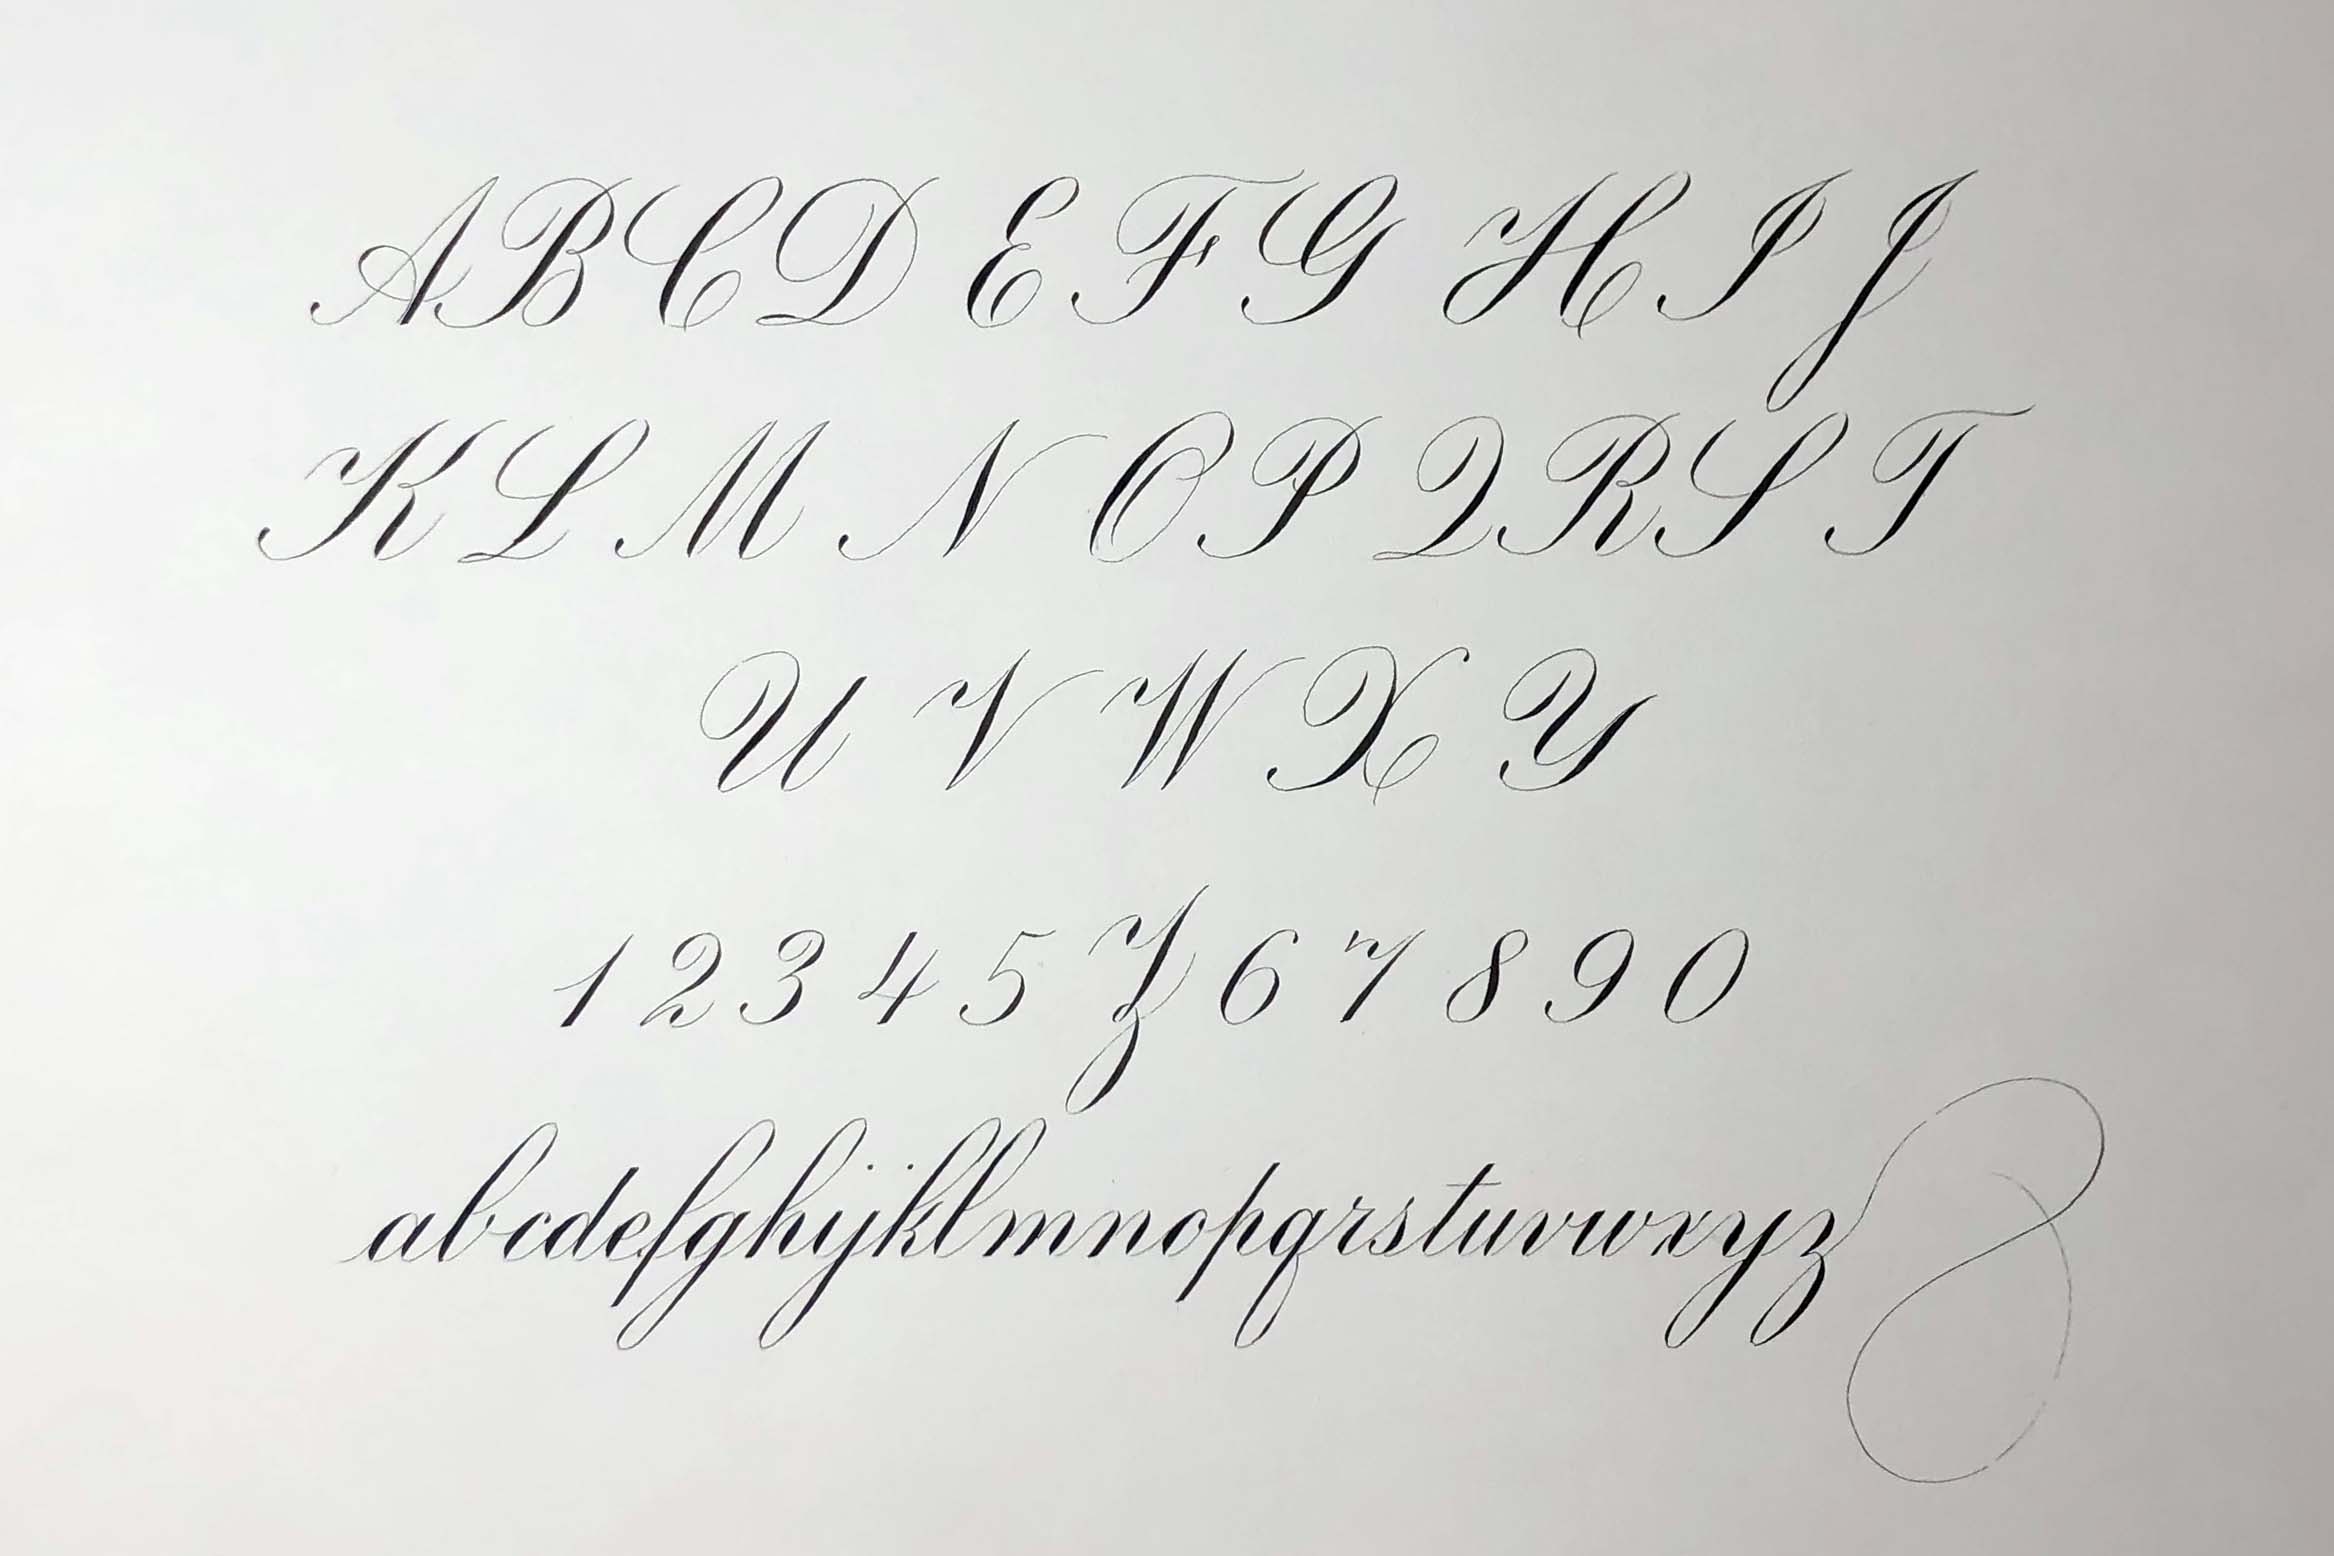 A B C D E F G H I J
K L M N O P Q R S T
U V W X Y
1 2 3 4 5 Z 6 7 8 9 0
abcdefghijklmnopqrstuvwxyz